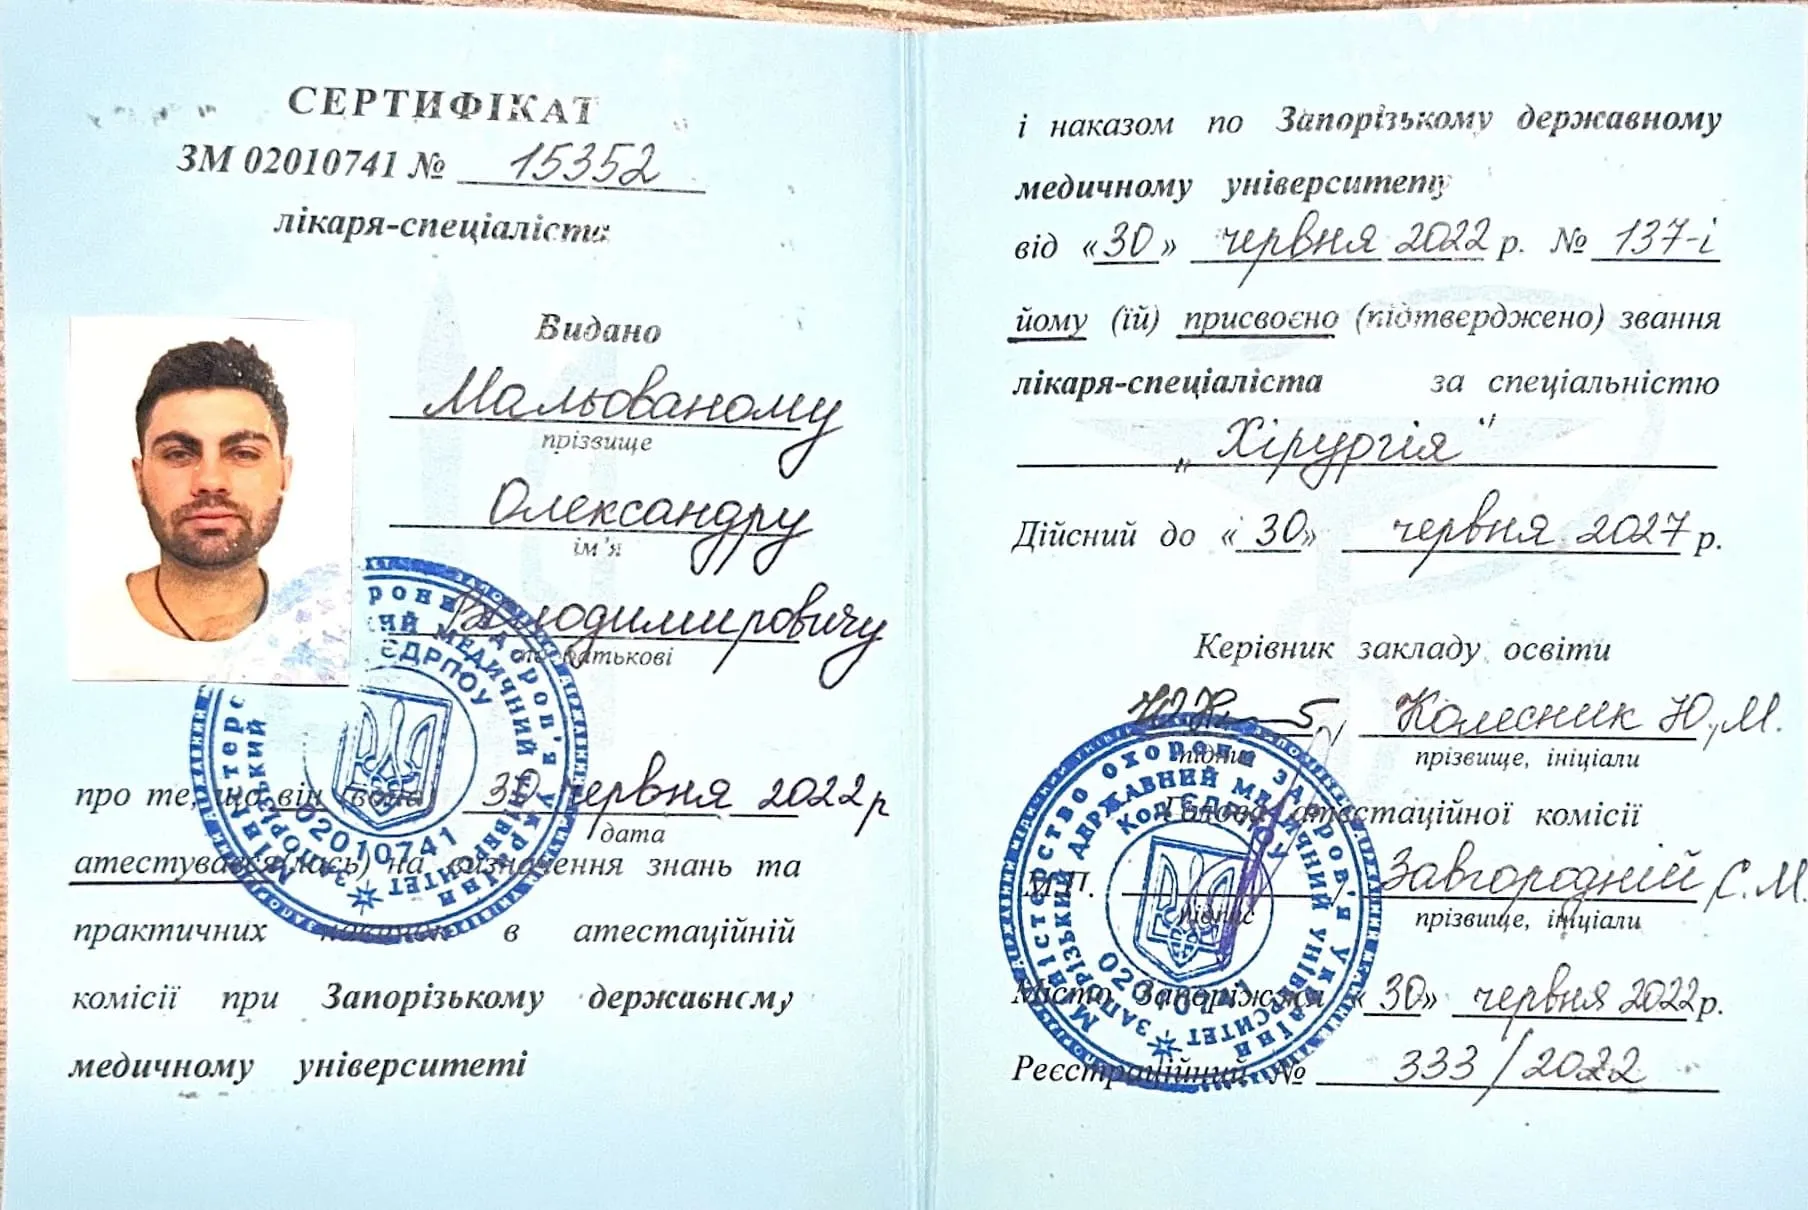 СЕРТИФІКАТ
ЗМ 02010741 № 15352
лікаря-спеціаліста
Видано
Мальованому
прізвище
Олександру
ім'я
Володимировичу
по батькові
про те, що він (вона) 30 червня 2022 р
дата
атестувався(лась) на визначення знань та
практичних навичок в атестаційній
комісії при Запорізькому державному
медичному університеті
МІНІСТЕРСТВО ОХОРОНИ ЗДОРОВ'Я УКРАЇНИ
ЗАПОРІЗЬКИЙ ДЕРЖАВНИЙ МЕДИЧНИЙ УНІВЕРСИТЕТ
ЄДРПОУ
02010741
і наказом по Запорізькому державному
медичному університету
від «30» червня 2022 р. № 137-і
йому (їй) присвоєно (підтверджено) звання
лікаря-спеціаліста за спеціальністю
„Хірургія"
Дійсний до «30» червня 2027 р.
Керівник закладу освіти
Колесник Ю.М.
підпис прізвище, ініціали
Голова атестаційної комісії
М.П. Завгородній С.М.
підпис прізвище, ініціали
Місто Запоріжжя «30» червня 2022 р.
Реєстраційний № 333/2022
МІНІСТЕРСТВО ОХОРОНИ ЗДОРОВ'Я УКРАЇНИ
ЗАПОРІЗЬКИЙ ДЕРЖАВНИЙ МЕДИЧНИЙ УНІВЕРСИТЕТ
КОД ЄДРПОУ
02010741